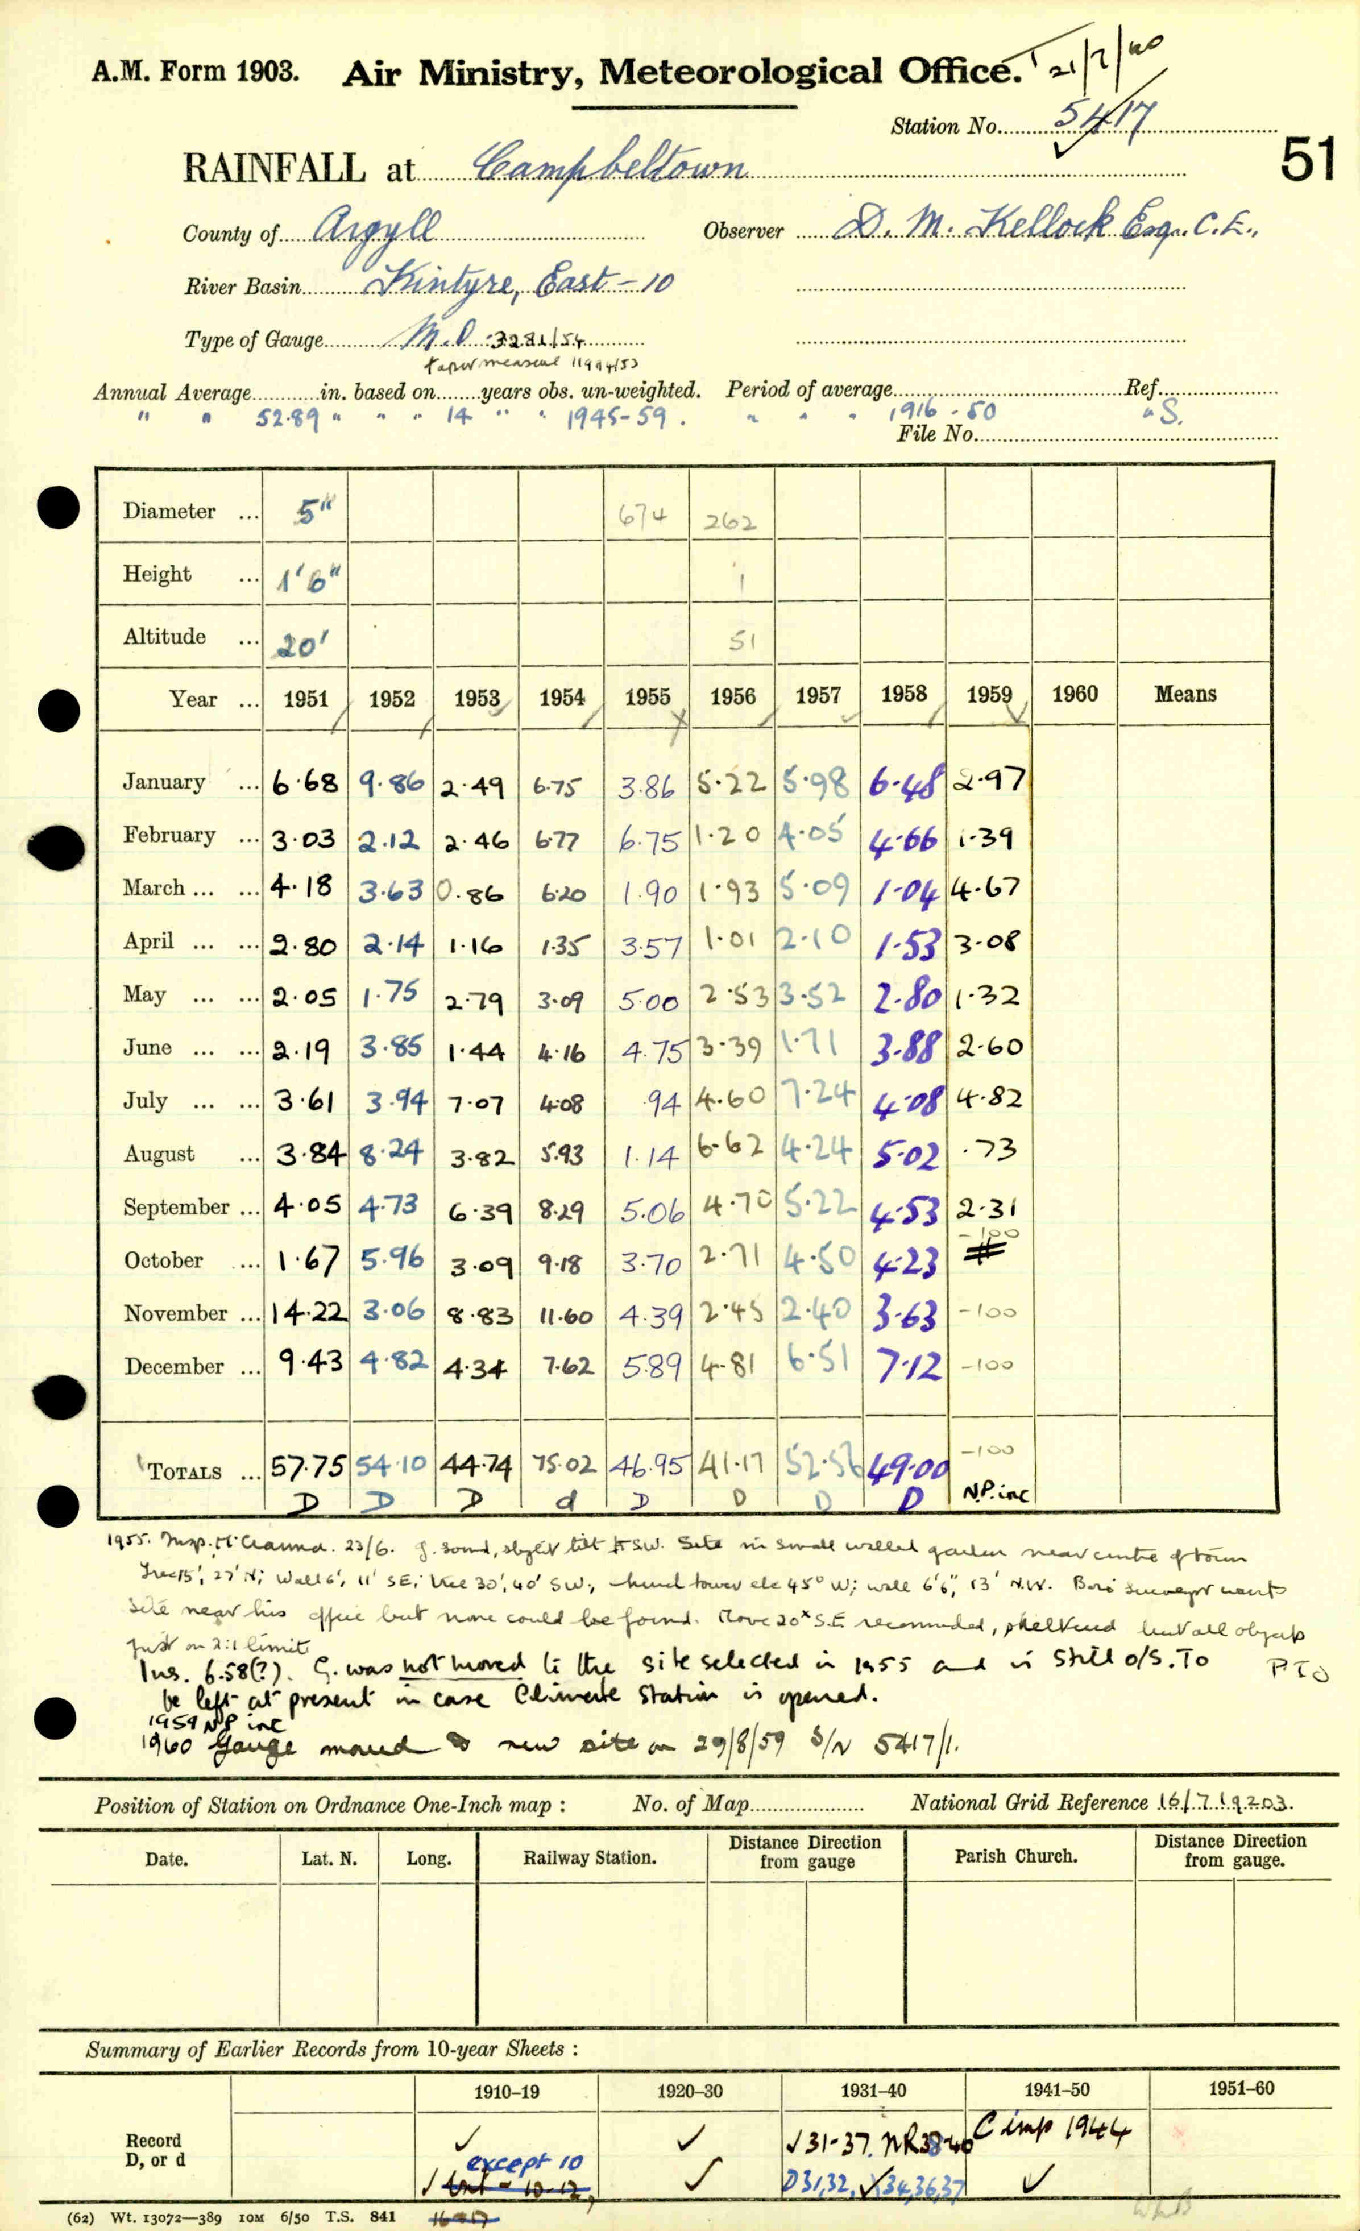 A.M. Form 1903. Air Ministry, Meteorological Office. 21/7/60
Station No. 5417
51
RAINFALL at Campbeltown
County of Argyll Observer D. M. Kellock Esq. C.E.,
River Basin Kintyre, East - 10
Type of Gauge M.O 3281/54
Taper measure 11994/53
Annual Average in. based on years obs. un-weighted. Period of average Ref.
" " 52.89 " " " 14 " " 1945-59. " " " 1916-50 "S.
File No.
Diameter ... 5" 674 262
Height ... 1'6" 1
Altitude ... 20' 51
Year ... 1951 1952 1953 1954 1955 1956 1957 1958 1959 1960 Means
January ... 6.68 9.86 2.49 6.75 3.86 5.22 5.98 6.48 2.97
February ... 3.03 2.12 2.46 6.77 6.75 1.20 4.05 4.66 1.39
March ... ... 4.18 3.63 0.86 6.20 1.90 1.93 5.09 1.04 4.67
April ... ... 2.80 2.14 1.16 1.35 3.57 1.01 2.10 1.53 3.08
May ... ... 2.05 1.75 2.79 3.09 5.00 2.53 3.52 2.80 1.32
June ... ... 2.19 3.85 1.44 4.16 4.75 3.39 1.71 3.88 2.60
July ... ... 3.61 3.94 7.07 4.08 .94 4.60 7.24 4.08 4.82
August ... 3.84 8.24 3.82 5.93 1.14 6.62 4.24 5.02 .73
September ... 4.05 4.73 6.39 8.29 5.06 4.70 5.22 4.53 2.31
October ... 1.67 5.96 3.09 9.18 3.70 2.71 4.50 4.23 -100
November ... 14.22 3.06 8.83 11.60 4.39 2.45 2.40 3.63 -100
December ... 9.43 4.82 4.34 7.62 5.89 4.81 6.51 7.12 -100
TOTALS ... 57.75 54.10 44.74 75.02 46.95 41.17 52.56 49.00 -100
D D D d D D D D N.P. inc
1955. Insp. 23/6. G. sound, slight tilt to SW. Site in small walled garden near centre of town
Tree 15', 27' N; Wall 6', 11' SE; tree 30', 40' SW; church tower ele 45° W; wall 6'6", 13' N.W. Boro' surveyor wants
site near his office but none could be found. Move 20x S.E recommended, sheltered but all objects
just on 2:1 limit
Ins. 6.58(?). G. was not moved to the site selected in 1955 and is still o/s. To PTO
be left at present in case Climate Station is opened.
1959 NP inc
1960 Gauge moved to new site on 29/8/59 S/N 5417/1.
Position of Station on Ordnance One-Inch map : No. of Map National Grid Reference 16/719203.
Date. Lat. N. Long. Railway Station. Distance Direction from gauge Parish Church. Distance Direction from gauge.
Summary of Earlier Records from 10-year Sheets :
1910-19 1920-30 1931-40 1941-50 1951-60
Record ✓ ✓ ✓31-37. NR38-40 C imp 1944
D, or d ✓ except 10 ✓ D31,32, ✓34,36,37 ✓
(62) Wt. 13072—389 10M 6/50 T.S. 841